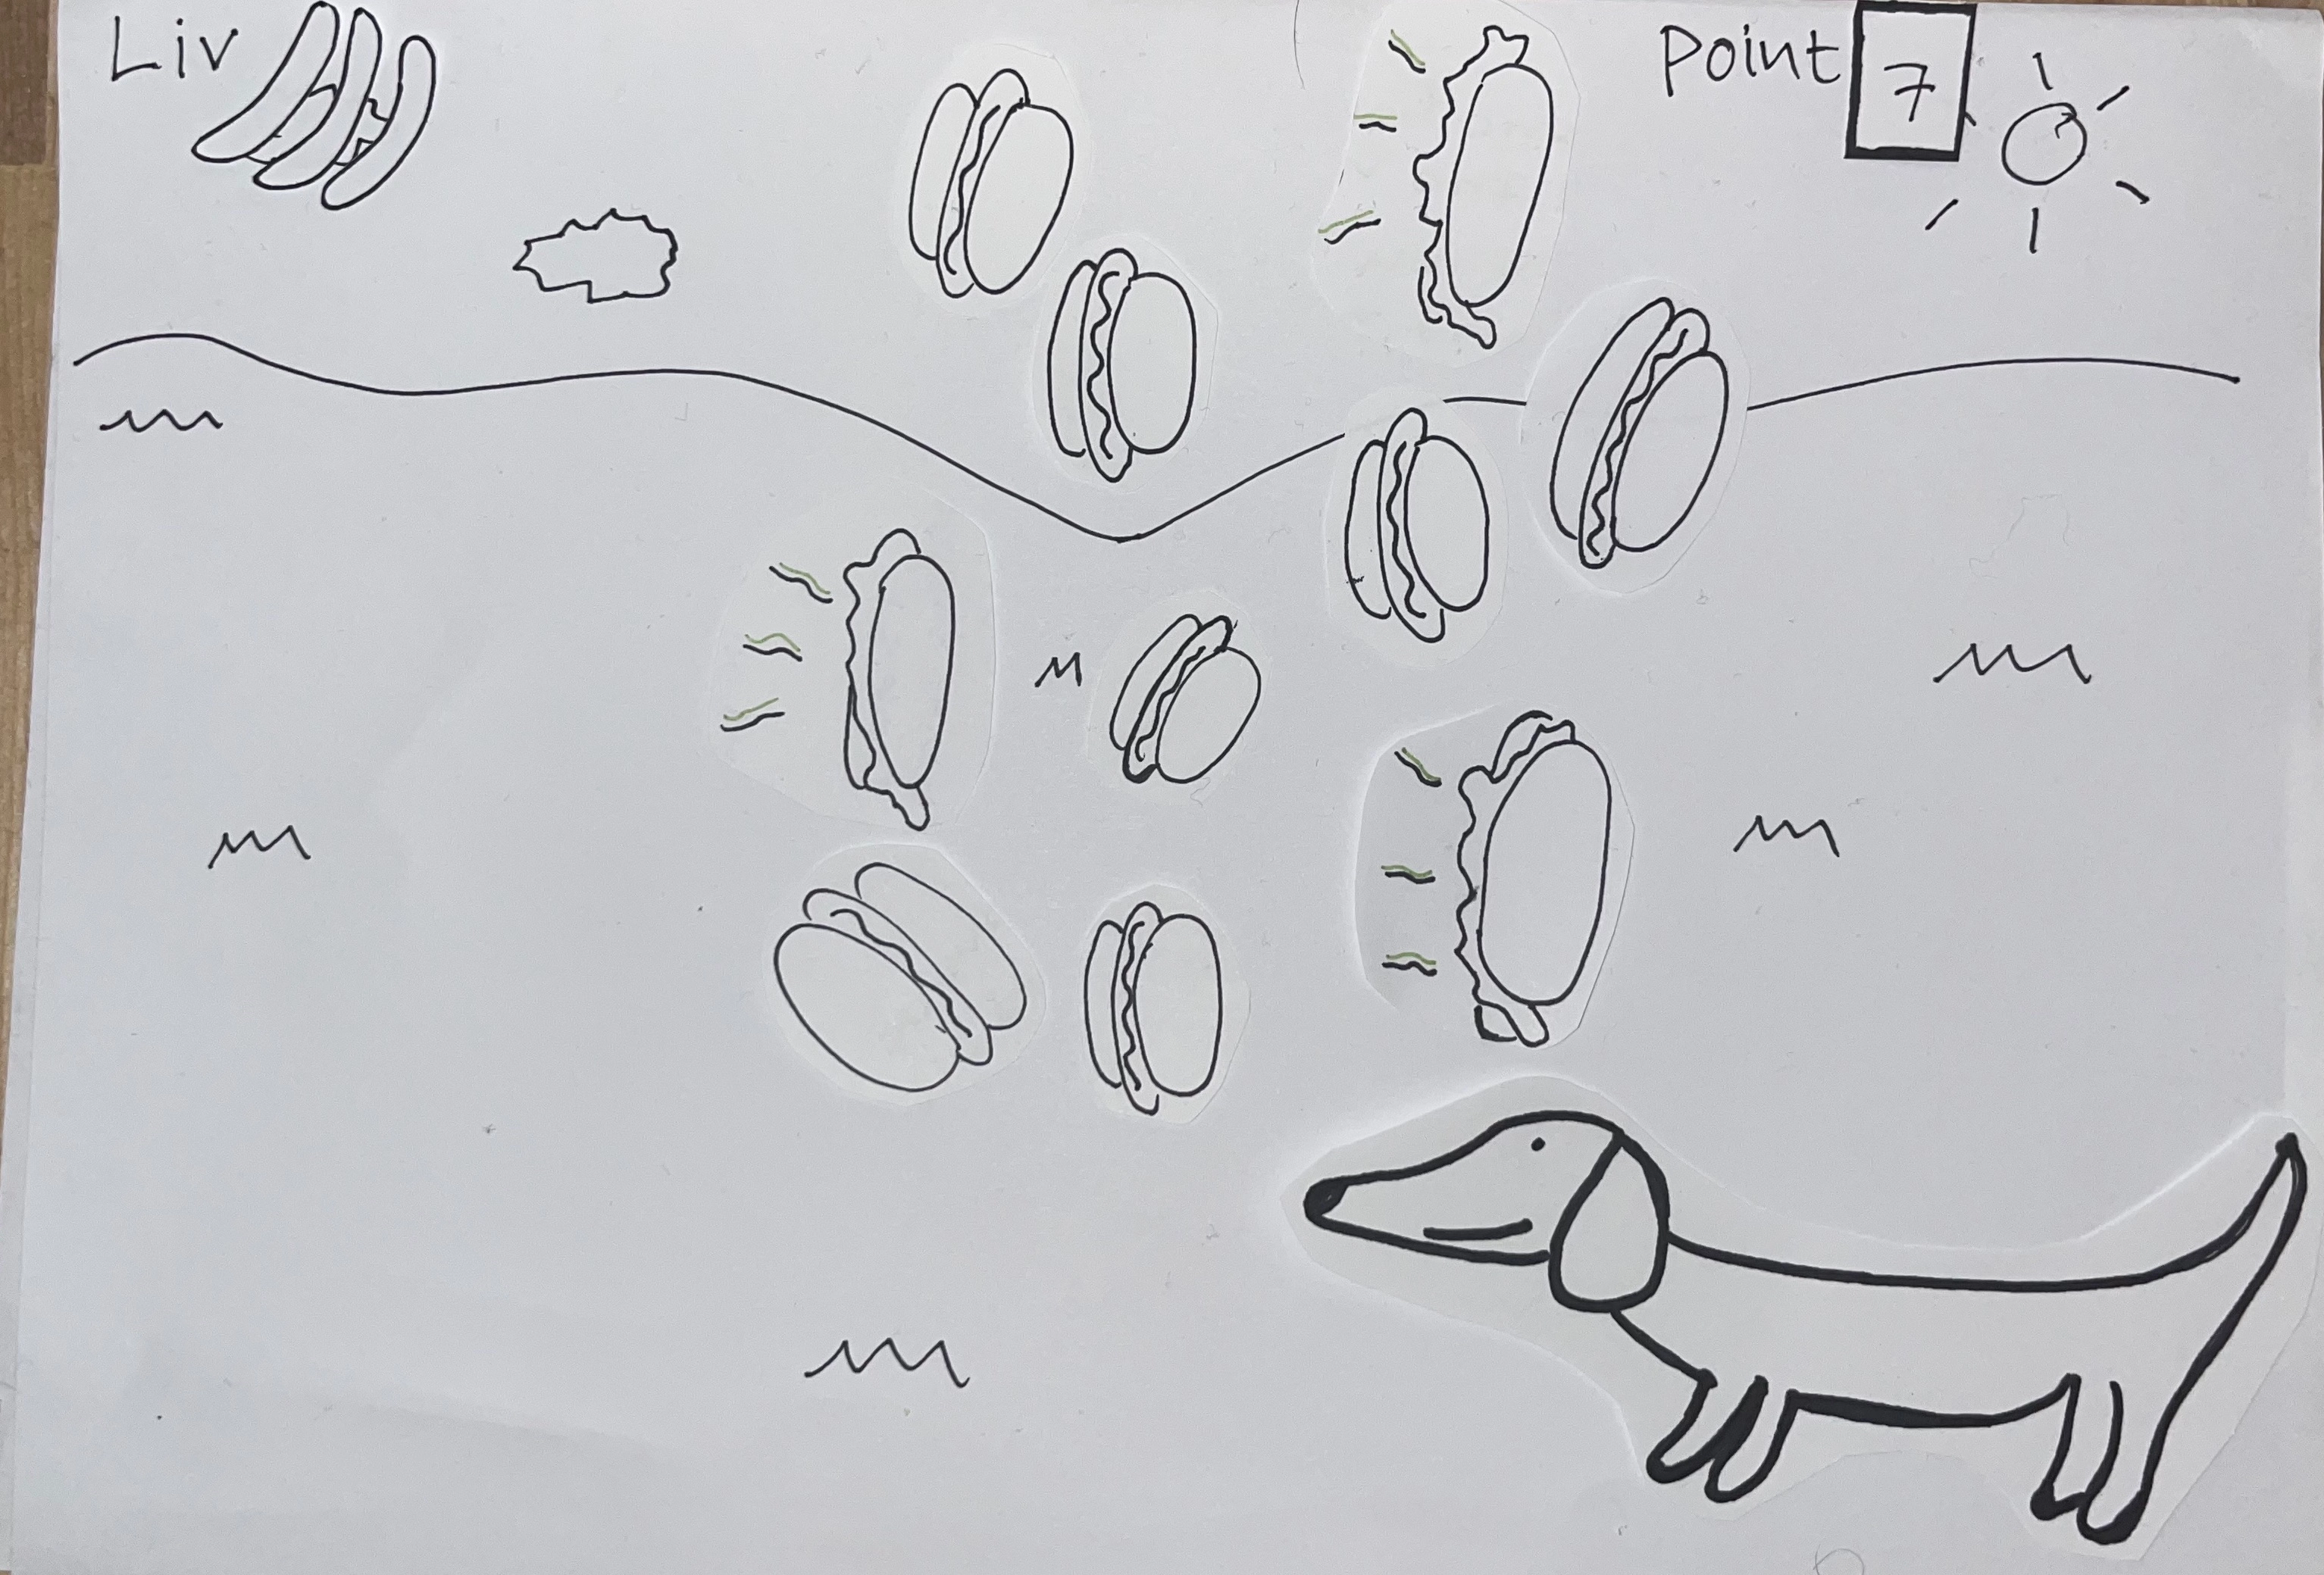 Liv
Point 7